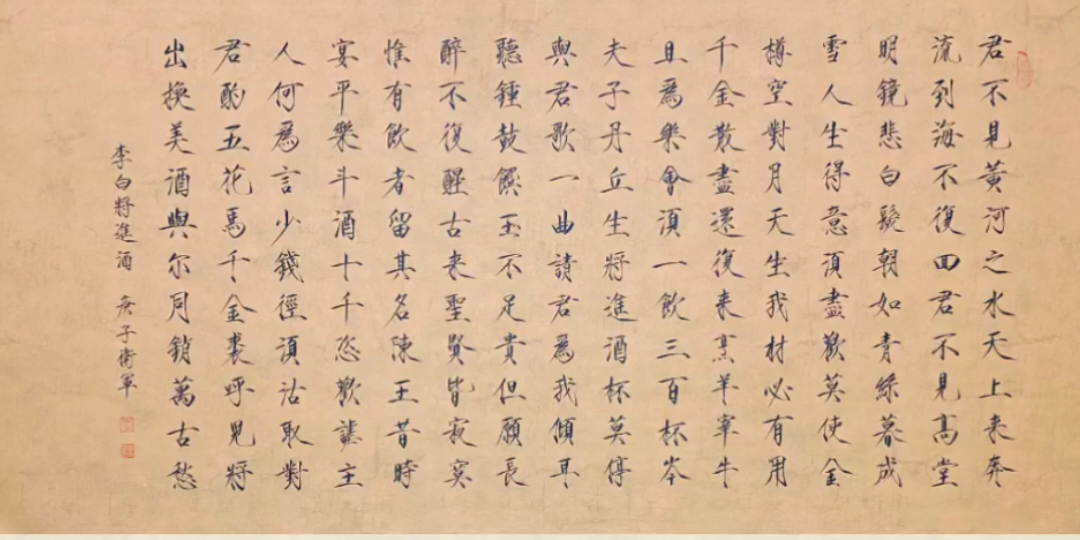 君不見黃河之水天上来奔
流到海不復回君不見高堂
明鏡悲白髮朝如青絲暮成
雪人生得意須盡歡莫使金
樽空對月天生我材必有用
千金散盡還復来烹羊宰牛
且為樂會須一飲三百杯岑
夫子丹丘生將進酒杯莫停
與君歌一曲請君為我傾耳
聽鍾鼓饌玉不足貴但願長
醉不復醒古来聖賢皆寂寞
惟有飲者留其名陳王昔時
宴平樂斗酒十千恣歡謔主
人何為言少錢徑須沽取對
君酌五花馬千金裘呼兒將
出換美酒與尔同銷萬古愁
李白將進酒 庚子衛軍